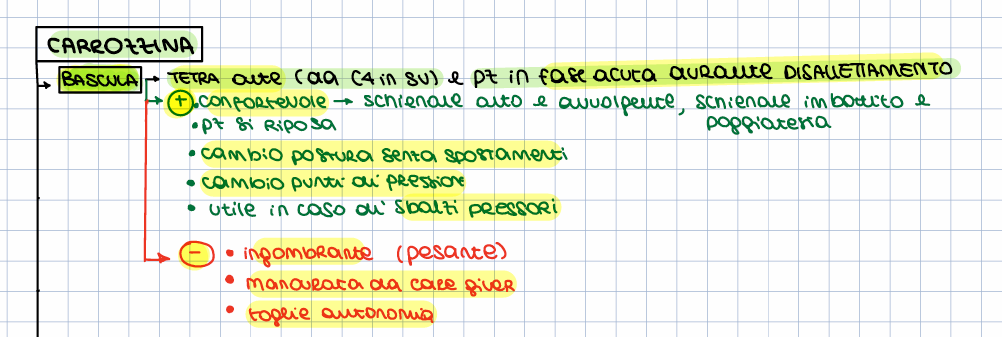 CARROZZINA
BASCULA → TETRA alte (da C4 in su) e pz in fase acuta durante DISALLETTAMENTO
+ • confortevole → schienale alto e avvolgente, schienale imbottito e
poggiatesta
• pz si RIPOSA
• cambio postura senza spostamenti
• cambio punti di pressione
• utile in caso di sbalzi pressori
- • ingombrante (pesante)
• manovrata da care giver
• toglie autonomia